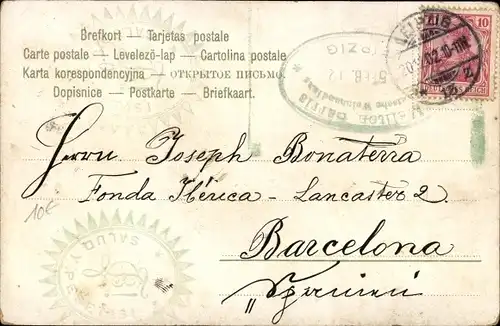 Brefkort — Tarjetas postale
Carte postale — Levelező-lap — Cartolina postale
Karta korespondencyjna — ОТКРЫТОЕ ПИСЬМО.
Dopisnice — Postkarte — Briefkaart.
LEIPZIG
10
Herrn Joseph Bonaterra
Fonda Ibérica - Lancaster 2.
10€
Barcelona
"Spanien
SALUD Y PESETAS